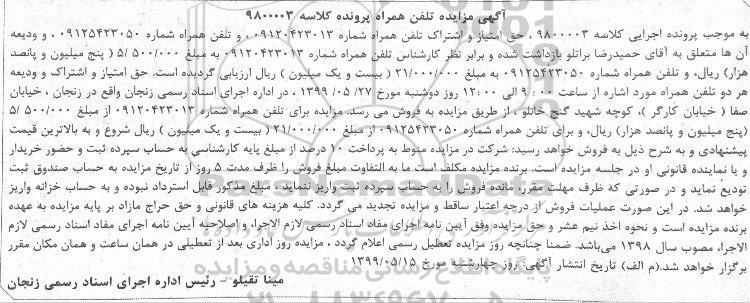 آگهی مزایده تلفن همراه پرونده کلاسه ۹۸۰۰۰۰۳
به موجب پرونده اجرایی کلاسه ۹۸۰۰۰۰۳ ، حق امتیاز و اشتراک تلفن همراه شماره ۰۹۱۲۰۴۲۳۰۱۳ ، و تلفن همراه شماره ۰۹۱۲۵۴۲۳۰۵۰ ، و ودیعه
آن ها متعلق به آقای حمیدرضا براتلو بازداشت شده و برابر نظر کارشناس تلفن همراه شماره ۰۹۱۲۰۴۲۳۰۱۳ به مبلغ ۵۰۰/۰۰۰ /۵ ( پنج میلیون و پانصد
هزار) ریال، و تلفن همراه شماره ۰۹۱۲۵۴۲۳۰۵۰ به مبلغ ۲۱/۰۰۰/۰۰۰ ( بیست و یک میلیون ) ریال ارزیابی گردیده است. حق امتیاز و اشتراک و ودیعه
هر دو تلفن همراه مورد اشاره از ساعت ۹:۰۰ الی ۱۲:۰۰ روز دوشنبه مورخ ۲۷/ ۰۵/ ۱۳۹۹ ، در اداره اجرای اسناد رسمی زنجان واقع در زنجان ، خیابان
صفا ( خیابان کارگر )، کوچه شهید گنج خانلو ، از طریق مزایده به فروش می رسد. مزایده برای تلفن همراه شماره ۰۹۱۲۰۴۲۳۰۱۳ از مبلغ ۵۰۰/۰۰۰ /۵
(پنج میلیون و پانصد هزار) ریال، و برای تلفن همراه شماره ۰۹۱۲۵۴۲۳۰۵۰ از مبلغ ۲۱/۰۰۰/۰۰۰ ( بیست و یک میلیون ) ریال شروع و به بالاترین قیمت
پیشنهادی و به شرح ذیل به فروش خواهد رسید: شرکت در مزایده منوط به پرداخت ۱۰ درصد از مبلغ پایه کارشناسی به حساب سپرده ثبت و حضور خریدار
و یا نماینده قانونی او در جلسه مزایده است. برنده مزایده مکلف است ما به التفاوت مبلغ فروش را ظرف مدت ۵ روز از تاریخ مزایده به حساب صندوق ثبت
تودیع نماید و در صورتی که ظرف مهلت مقرر، مانده فروش را به حساب سپرده ثبت واریز ننماید ، مبلغ مذکور قابل استرداد نبوده و به حساب خزانه واریز
خواهد شد. در این صورت عملیات فروش از درجه اعتبار ساقط و مزایده تجدید می گردد. کلیه هزینه های قانونی و حق حراج مازاد بر پایه مزایده به عهده
برنده مزایده است و نحوه اخذ نیم عشر و حق مزایده وفق آیین نامه اجرای مفاد اسناد رسمی لازم الاجرا، و اصلاحیه آیین نامه اجرای مفاد اسناد رسمی لازم
الاجرا، مصوب سال ۱۳۹۸ می‌باشد. ضمنا چنانچه روز مزایده تعطیل رسمی اعلام گردد ، مزایده روز اداری بعد از تعطیلی در همان ساعت و همان مکان مقرر
برگزار خواهد شد.(م الف) تاریخ انتشار آگهی: روز چهارشنبه مورخ ۱۳۹۹/۰۵/۱۵
مینا تقیلو - رئیس اداره اجرای اسناد رسمی زنجان